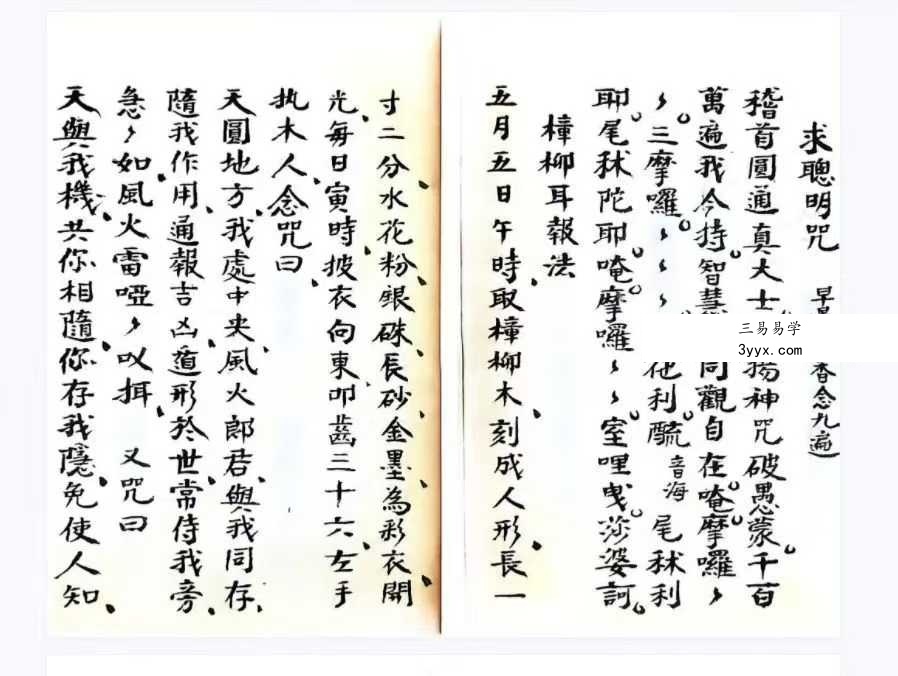 求聰明咒 早 香念九遍
稽首圓通真大士 揚神咒破愚蒙千百
萬遍我今持智慧 同觀自在唵摩囉〻
〻三摩囉〻〻 佗利酼音海尾秫利
耶尾秫陀耶唵摩囉〻〻室哩曳莎婆訶
樟柳耳報法
五月五日午時取樟柳木刻成人形長一
寸二分水花粉銀硃辰砂金墨為彩衣開
光每日寅時披衣向東叩齒三十六左手
执木人念咒曰
天圓地方我處中央風火郎君與我同存
隨我作用通報吉凶遁形於世常侍我旁
急〻如風火雷啞〻吹揖 又咒曰
天與我機共你相隨你存我隱免使人知
三易易学
3yyx.com